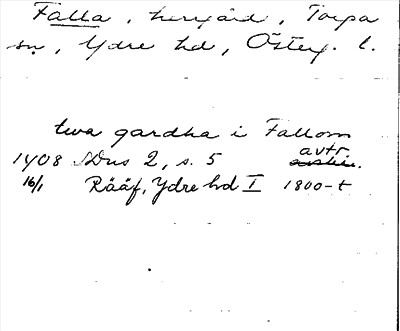 Falla, herrgård, Torpa
sn, Ydre hd, Österg. l.
twa gardha i Fallom
1408 SDns 2, s. 5 avtr.
16/1 Rääf, Ydre hd I 1800-t